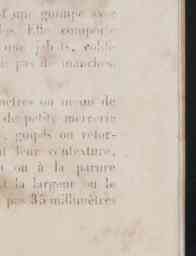 d'une guimpe avec
Elle comporte
une jabots, colle-
pas de manches.
mètres ou moins de
de petite mercerie
guipés ou retor-
leur contexture,
ou à la parure
la largeur ou le
pas 35 millimètres